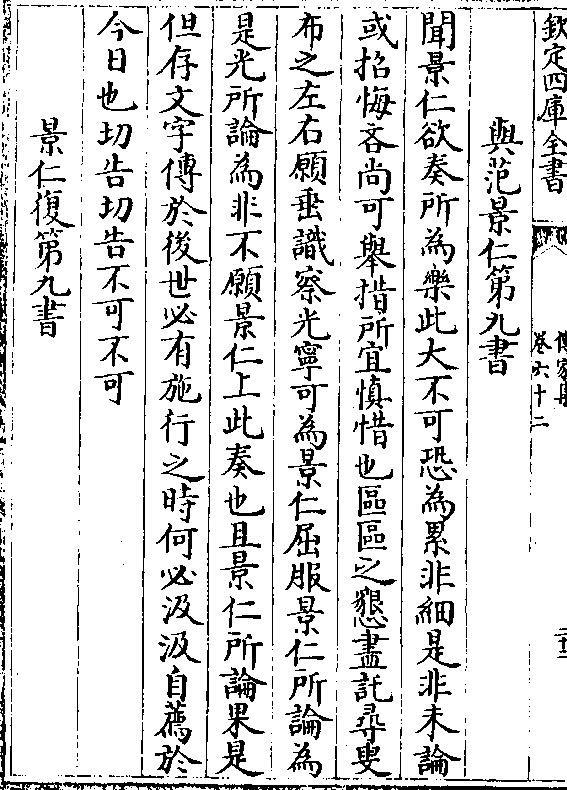 欽定四庫全書
傳家集
卷六十二
與范景仁第九書
聞景仁欲奏所為樂此大不可恐為累非細是非未論
或招悔吝尚可舉措所宜慎惜也區區之懇盡託尋叟
布之左右願垂識察光寧可為景仁屈服景仁所論為
是光所論為非不願景仁上此奏也且景仁所論果是
但存文字傳於後世必有施行之時何必汲汲自薦於
今日也切告切告不可不可
景仁復第九書